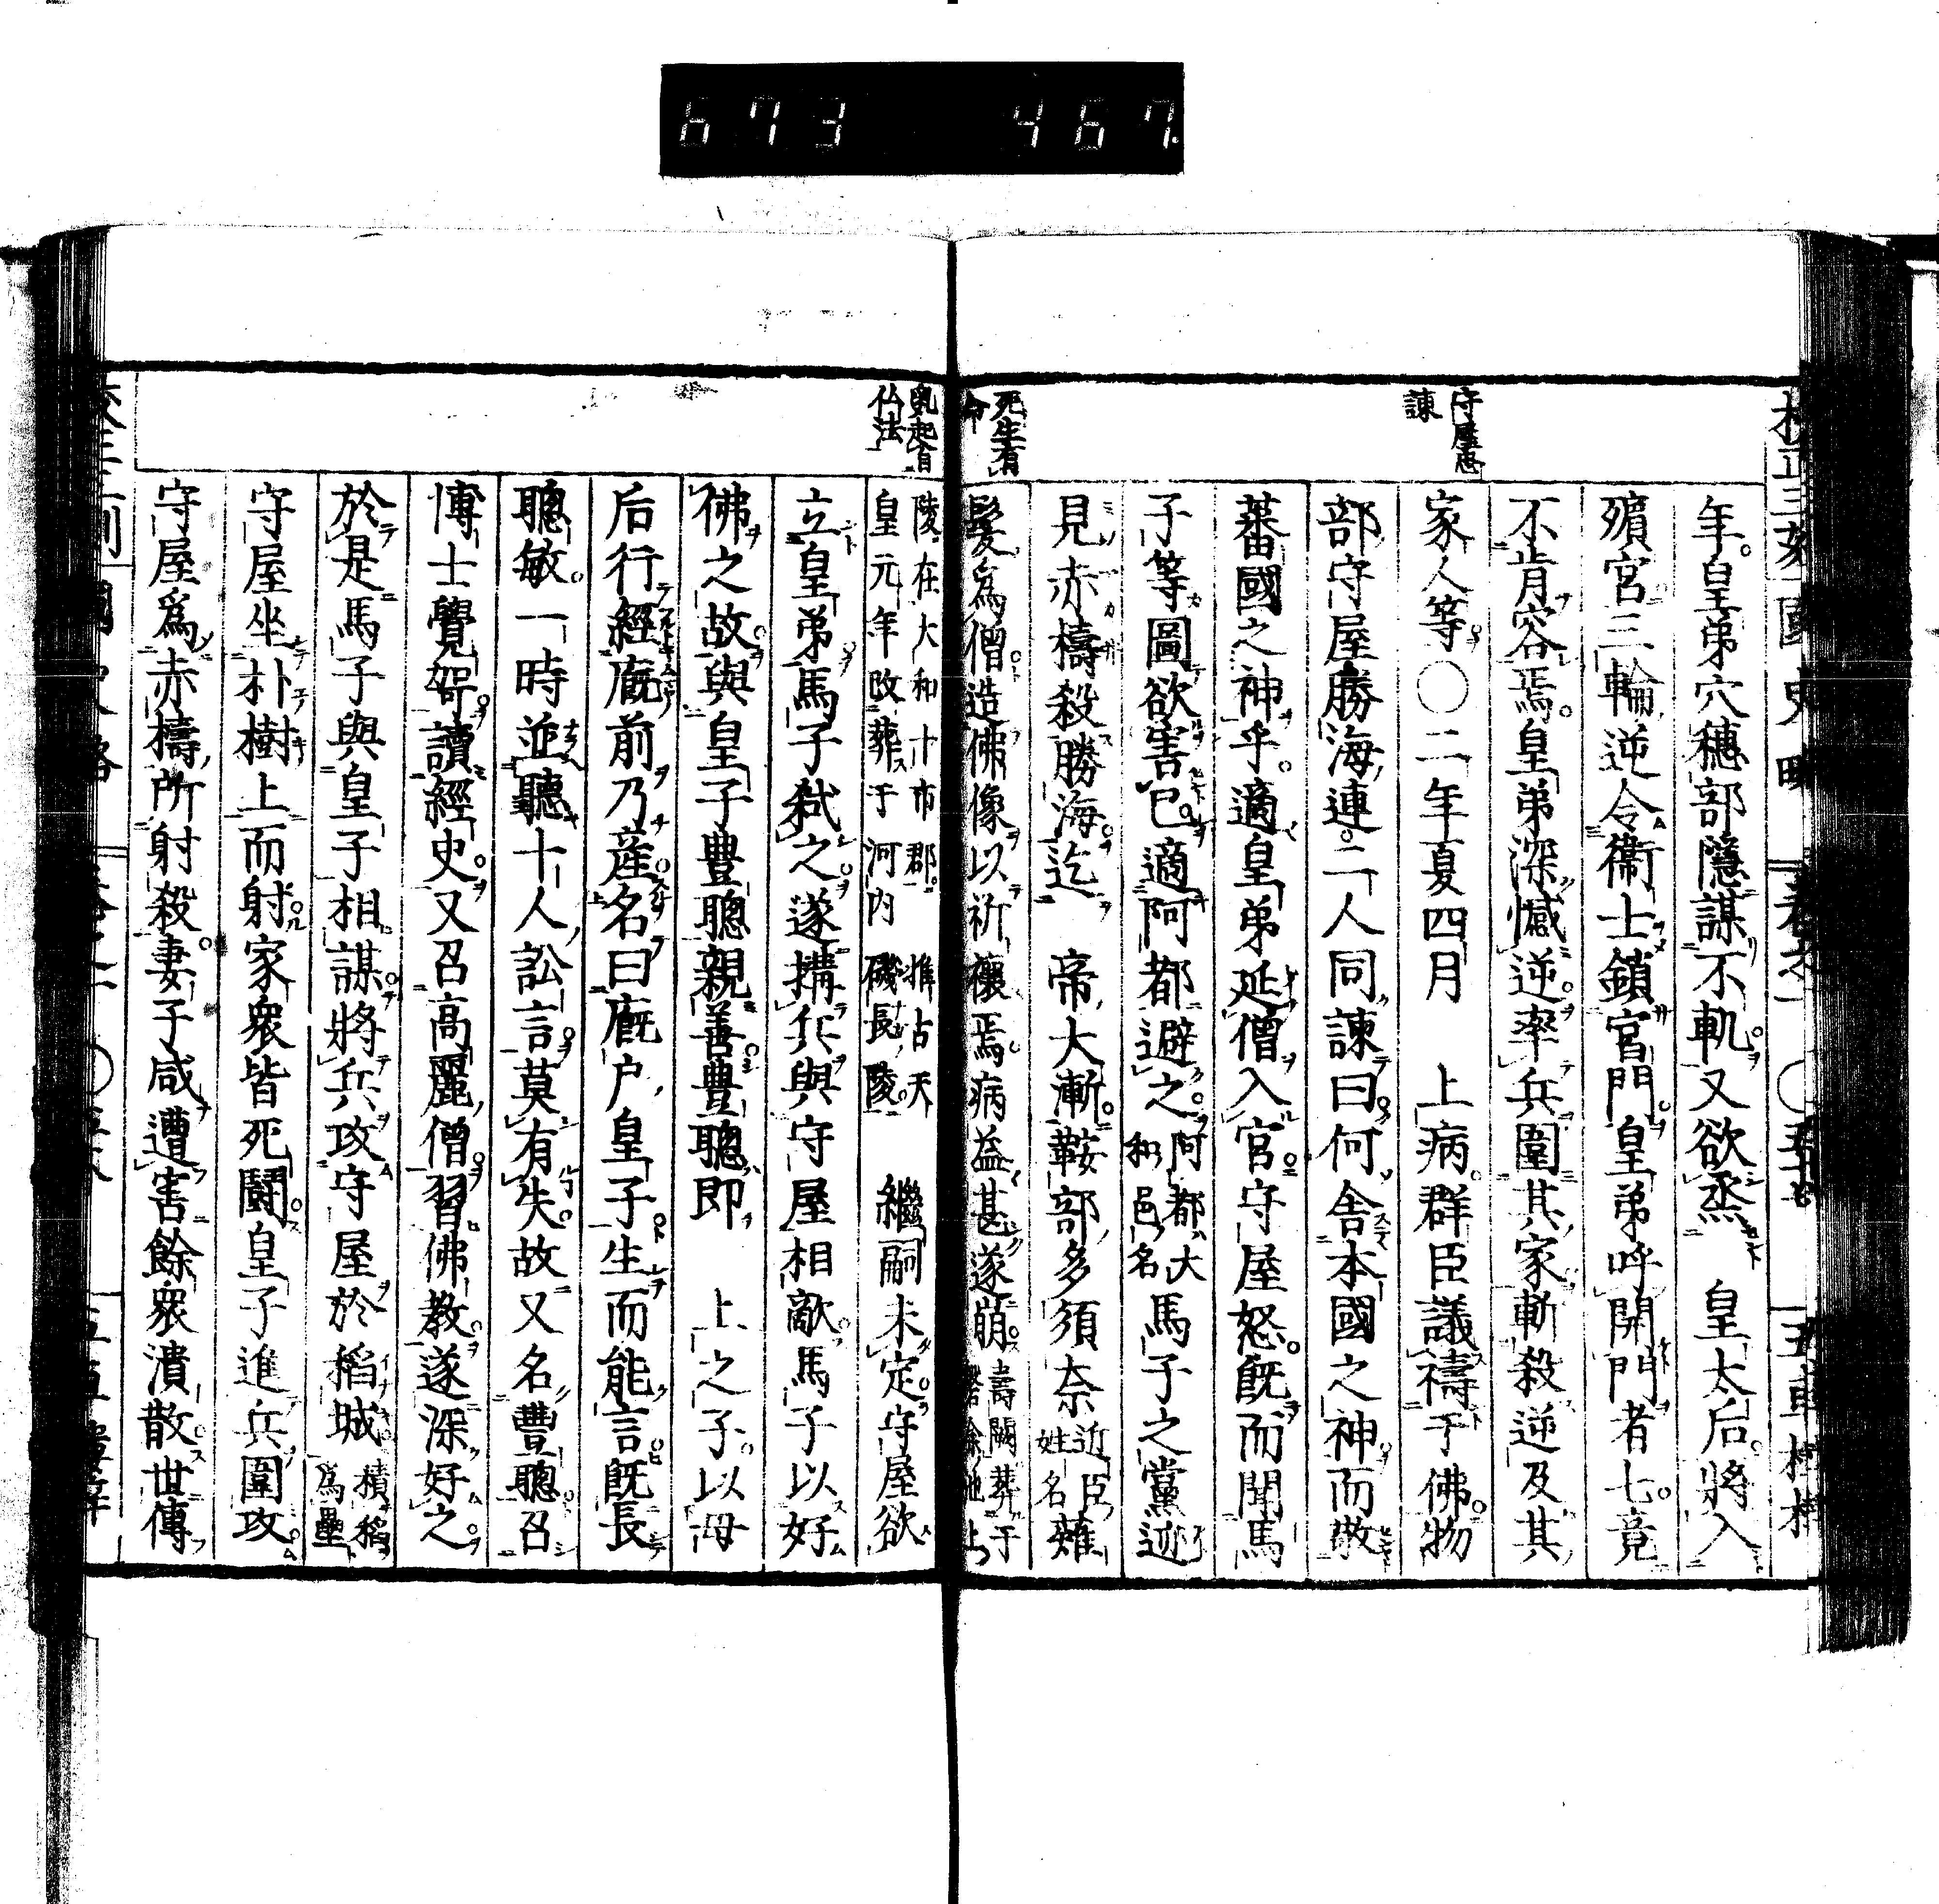 673 467
守屋忠
諫
死生有
命
年皇弟穴穗部隱謀不軌又欲烝 皇太后將入
殯宮三輪逆令衞士鎖宮門皇弟呼開門者七竟
不肯容焉皇弟深憾逆率兵圍其家斬殺逆及其
家人等〇二年夏四月 上病群臣議禱于佛物
部守屋勝海連二人同諫曰何舍本國之神而敬
蕃國之神乎適皇弟延僧入宮守屋怒旣而聞馬
子等圖欲害已適阿都避之阿都大和邑名馬子之黨迹
見赤檮殺勝海迄 帝大漸鞍部多須奈近臣姓名薙
髮爲僧造佛像以祈禳焉病益甚遂崩壽闕葬于磐余池上
亂起自
仏法
陵在大和十市郡推古天皇元年改葬于河内磯長陵 繼嗣未定守屋欲
立皇弟馬子弑之遂搆兵與守屋相敵馬子以好
佛之故與皇子豊聰親善豊聰即 上之子以母
后行經廐前乃産名曰廐户皇子生而能言旣長
聰敏一時並聽十人訟言莫有失故又名豐聰召
博士覺哿讀經史又召高麗僧習佛教遂深好之
於是馬子與皇子相謀將兵攻守屋於稻城積稻爲壘
守屋坐朴樹上而射家衆皆死鬪皇子進兵圍攻
守屋爲赤檮所射殺妻子咸遭害餘衆潰散世傳